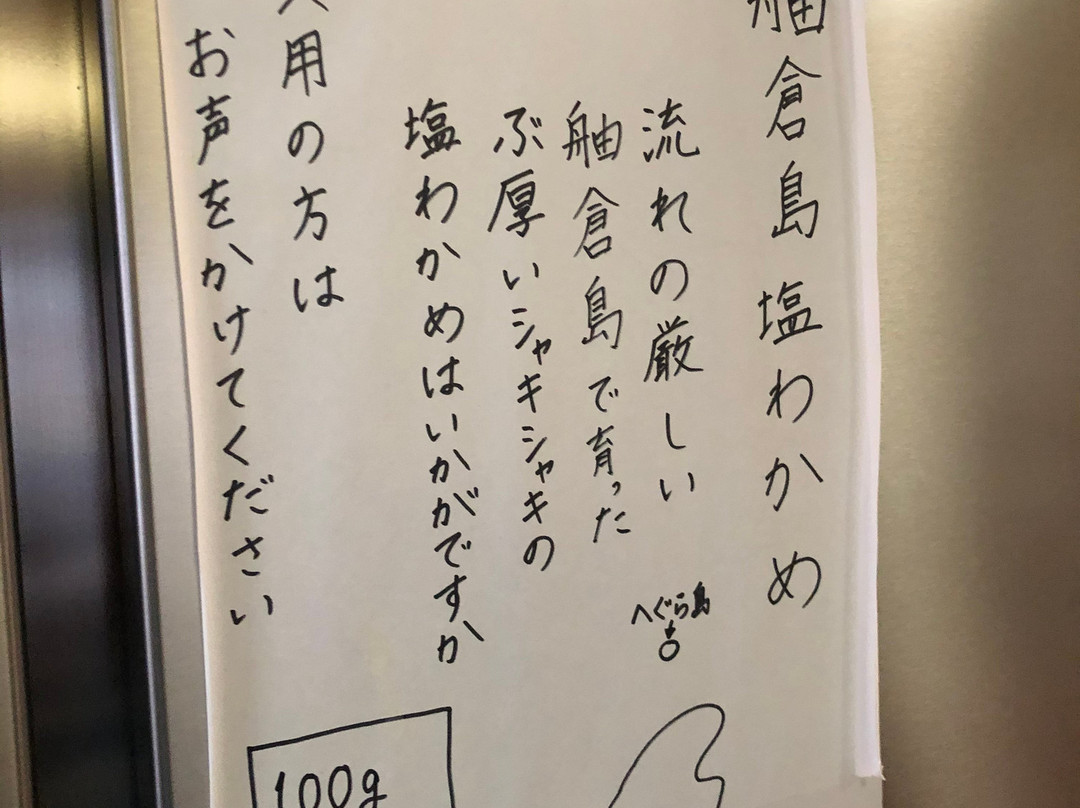 舳倉島塩わかめ
流れの厳しい
舳倉島で育った
ぶ厚いシャキシャキの
塩わかめはいかがですか
用の方は
お声をかけてください
へぐら島
100g